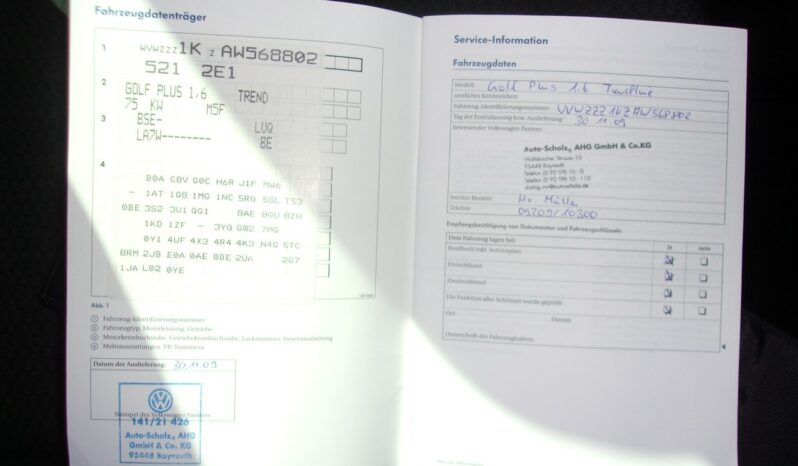 Fahrzeugdatenträger
1 WVWZZZ1K Z AW568802
521 2E1
2 GOLF PLUS 1,6 TREND
75 KW M5F
3 BSE-
LA7W-------- LUQ
BE
4
B0A C8V G0C H6R J1P MW6
- 1AT 1G8 1MG 1NC 5RQ 5SL T53
0BE 3S2 3U1 QG1 8AE 8GU 8ZH
1KD 1ZF - 3YQ Q02 7MG
0Y1 4UF 4X3 4R4 4K3 N4G 5TC
8RM 2JB E0A 0AE 0BE 2UA 2G7
1JA L02 0YE
Abb. 1
1 Fahrzeug-Identifizierungsnummer
2 Fahrzeugtyp, Motorleistung, Getriebe
3 Motorkennbuchstabe, Getriebekennbuchstabe, Lacknummer, Innenausstattung
4 Mehrausstattungen, PR-Nummern
Datum der Auslieferung: 30.11.09
Stempel des Volkswagen Partners
141/21 426
Auto-Scholz, AHG
GmbH & Co. KG
95448 Bayreuth
Service-Information
Fahrzeugdaten
Modell: Golf Plus 1.6 Trendline
amtliches Kennzeichen:
Fahrzeug-Identifizierungsnummer: WVWZZZ1KZAW568802
Tag der Erstzulassung bzw. Auslieferung: 30.11.09
betreuender Volkswagen Partner:
Auto-Scholz, AHG GmbH & Co.KG
95448 Bayreuth
Telefon (0 92 09) 10 - 0
Telefax (0 92 09) 10 - 110
Service-Berater: Hr. Müller
Telefon: 09209/10300
Empfangsbestätigung von Dokumenten und Fahrzeugschlüsseln
Dem Fahrzeug lagen bei: ja nein
Bordbuch inkl. Serviceplan
Erstschlüssel
Zweitschlüssel
Die Funktion aller Schlüssel wurde geprüft
Ort: Datum
Unterschrift des Fahrzeughalters: